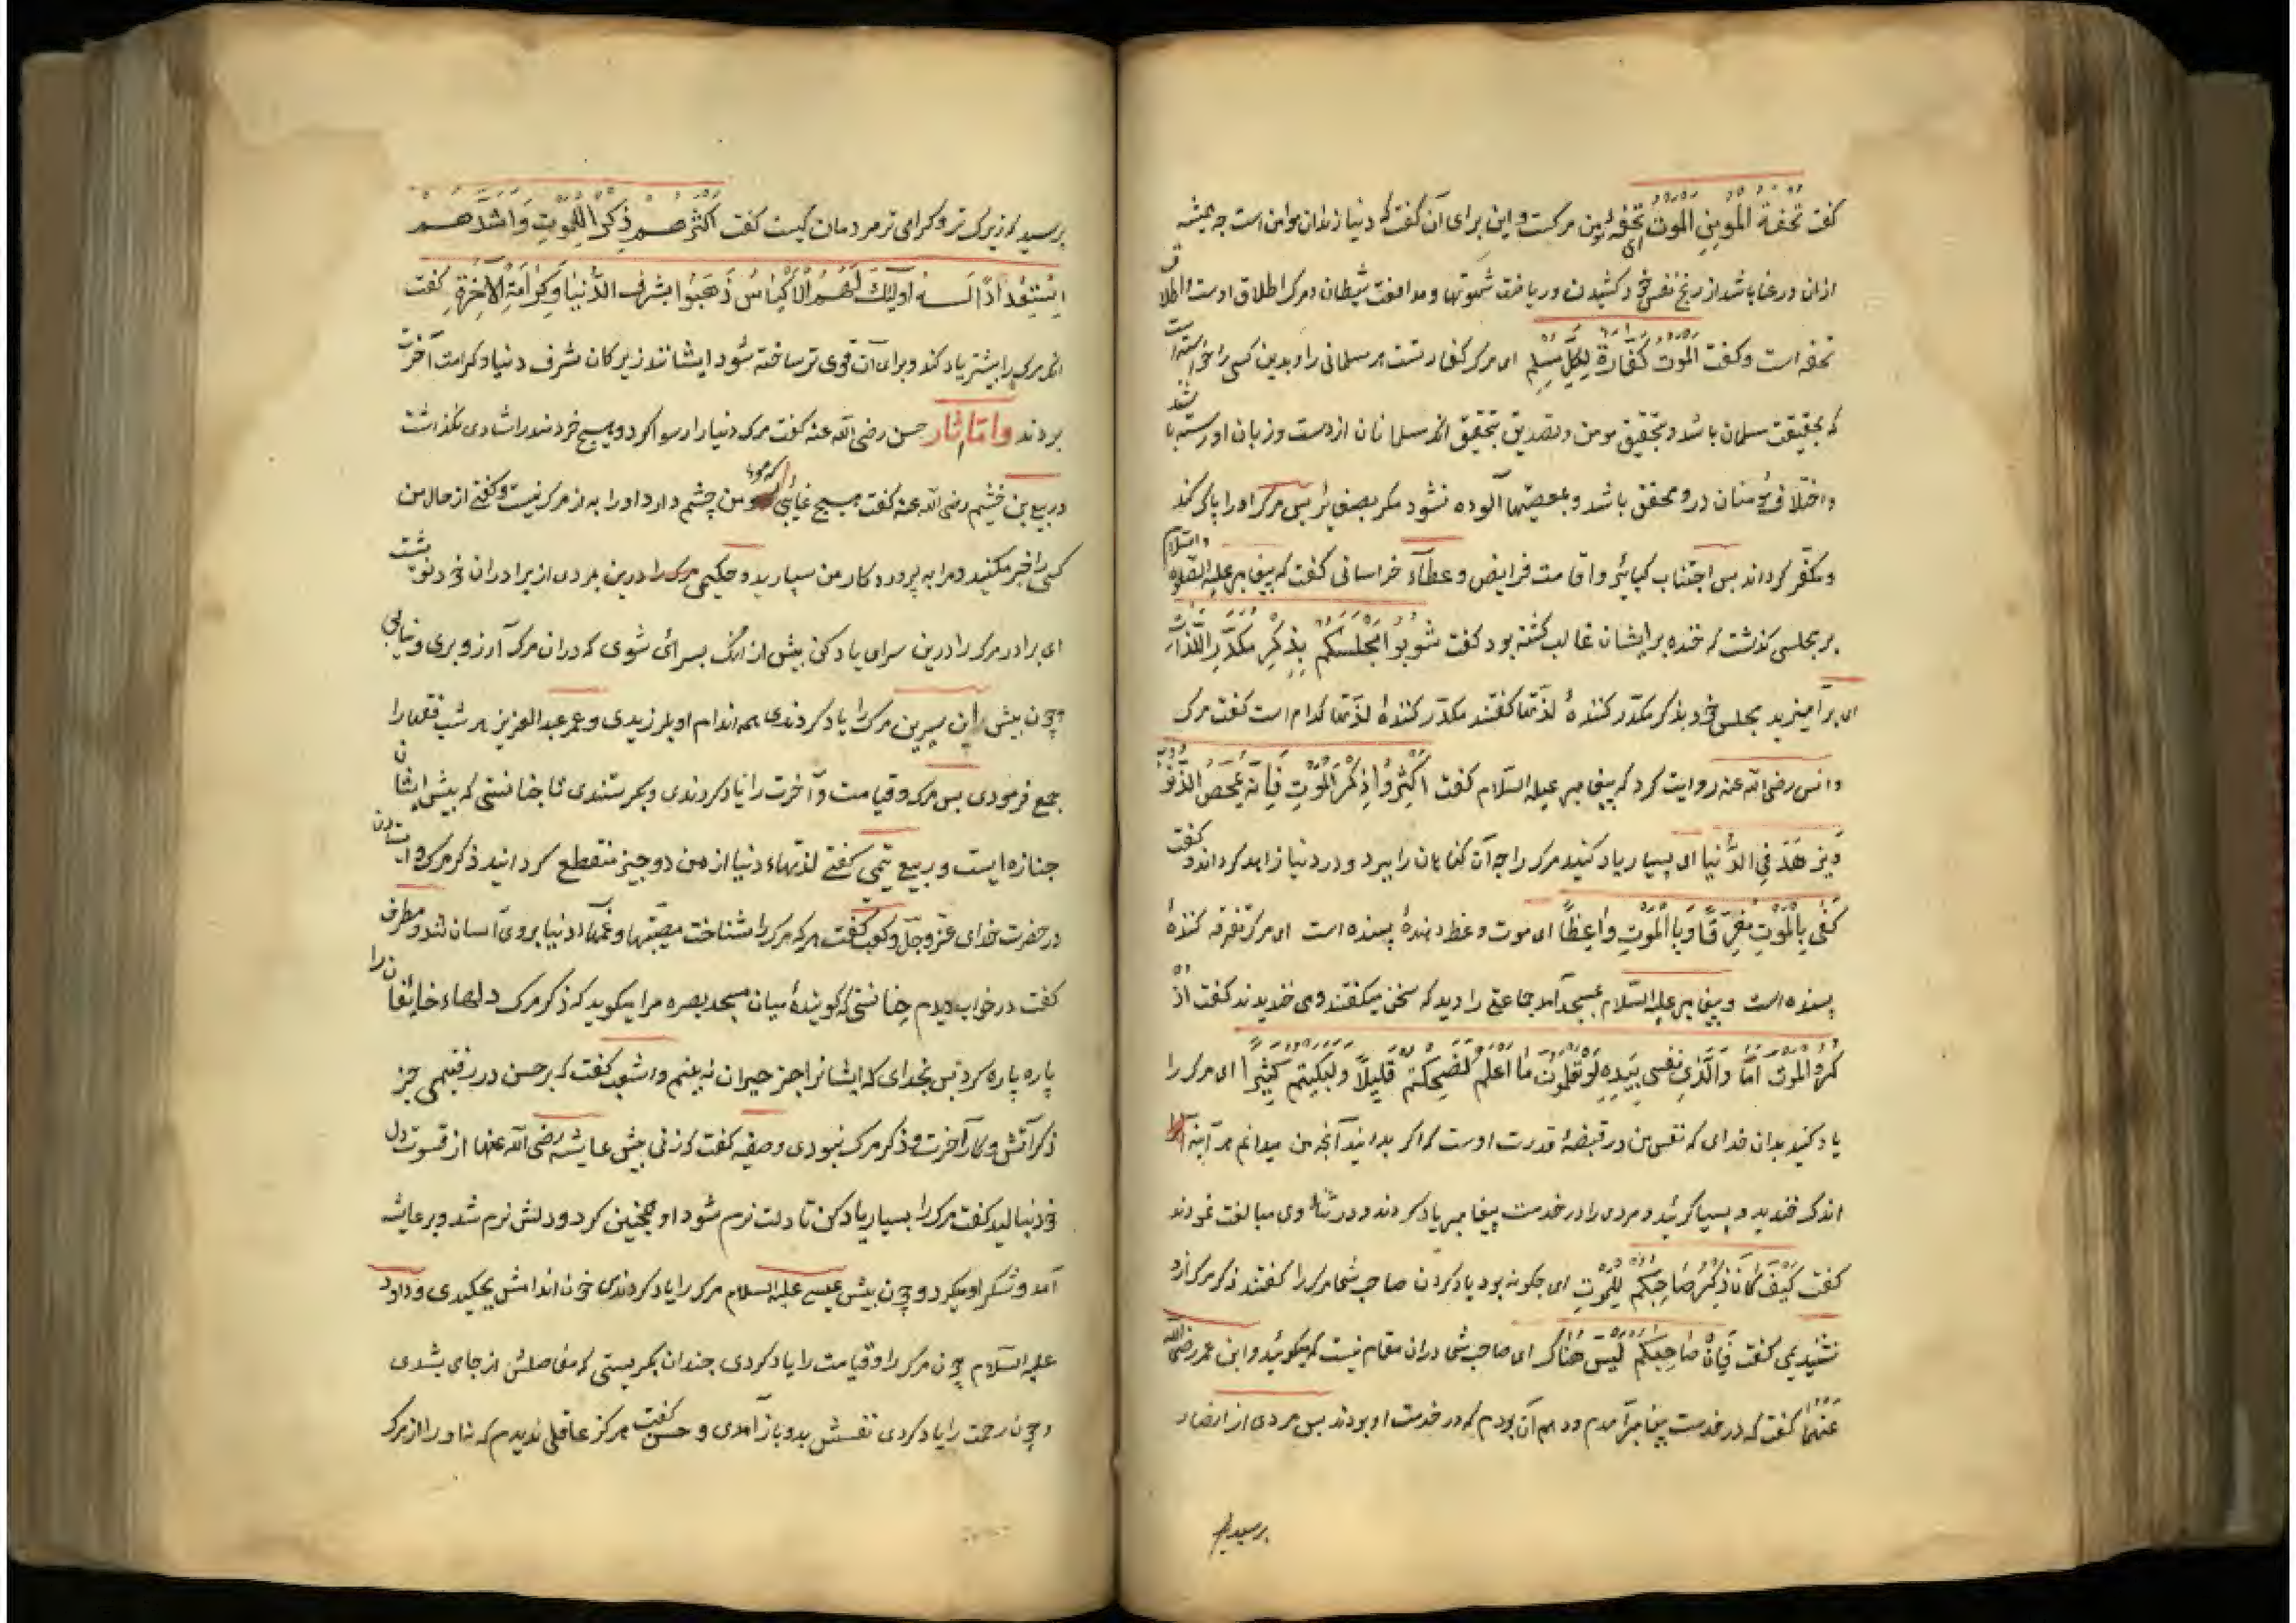 کفت تحفة المومن الموت ای تحفهٔ مومن مرکست و این برای آن کفت که دنیا زندان مومن است چه همیشه
ازان در عنا باشد از رنج نفس خود کشیدن و ریاضت شهوتها و مدافعت شیطان و مرک اطلاق اوست و اطلاق
تحفه است و کفت الموت کفارة لکل مسلم ای مرک کفارتست هر مسلمانی را و بدین کسی را خواسته است
که بحقیقت مسلمان باشد و بتحقیق مومن و تصدیق بتحقیق انکه مسلمانان از دست و زبان او رسته باشند
و اخلاق مؤمنان درو محقق باشد و بمعصیتها آلوده نشود مکر بصغیرا پس مرک او را پاک کند
و مکفر کرداند پس اجتناب کبایر و اقامت فرایض و عطاء خراسانی کفت که پیغامبر علیه الصلوة والسلام
بر مجلسی کذشت که خنده بر ایشان غالب کشته بود کفت شوبوا مجلسکم بذکر مکدر اللذات
ای برآمیزید مجلس خود بذکر مکدر کنندهٔ لذتها کفتند مکدر کنندهٔ لذتها کدام است کفت مرک
و انس رضی الله عنه روایت کرد که پیغامبر علیه السلام کفت اکثروا ذکر الموت فانه یمحص الذنوب
و یزهد فی الدنیا ای بسیار یاد کنید مرک را چه آن کناهان را ببرد و در دنیا زاهد کرداند و کفت
کفی بالموت مفرقا و بالموت واعظا ای موت وعظ دهندهٔ بسنده است ای مرک تفرقه کنندهٔ
بسنده است و پیغامبر علیه السلام بمسجد آمد جماعتی را دید که سخن میکفتند و می خندیدند کفت اذ
کروا الموت اما والذی نفسی بیده لو تعلمون ما اعلم لضحکتم قلیلا ولبکیتم کثیرا ای مرک را
یاد کنید بدان خدای که نفس من در قبضهٔ قدرت اوست که اکر بدانید آنچه من میدانم هر آینه
اندک خندید و بسیار کرئید و مردی را در خدمت پیغامبر یاد کردند و در ثناء وی مبالغت نمودند
کفت کیف کان ذکر صاحبکم للموت ای چکونه بود یاد کردن صاحب شما مرک را کفتند ذکر مرک ازو
نشنیدیمی کفت فان صاحبکم لیس هناک ای صاحب شما دران مقام نیست که میکوئید و ابن عمر رضی الله
عنهما کفت که در خدمت پیغامبر آمدم و دهم آن بودم که در خدمت او بودند پس مردی از انصار
پرسید که
پرسید که زیرک تر و کرامی تر مردمان کیست کفت اکثرهم ذکرا للموت واشدهم
استعدادا له اولیک هم الاکیاس ذهبوا بشرف الدنیا وکرامة الاخرة کفت
انکه مرک را بیشتر یاد کند و برای آن قوی تر ساخته شود ایشانند زیرکان شرف دنیا و کرامت آخرت
بردند واما اثار حسن رضی الله عنه کفت مرک دنیا را رسوا کرد و هیچ خردمند را شادی نکذاشت
و ربیع بن خیثم رضی الله عنه کفت هیچ غایبی که مومن چشم دارد او را به از مرک نیست و کفتی از حال من
کسی را خبر مکنید و مرا به پروردکار من سپارید و حکیمی مردی از برادران خود نوشت
ای برادر مرک را درین سرای یاد کن پیش از انک بسرائی شوی که دران مرک آرزو بری و نیابی
چون پیش ابن سیرین مرک را یاد کردندی همه اندام او بلرزیدی و عمر عبدالعزیز هر شب فقها را
جمع فرمودی پس مرک و قیامت و آخرت را یاد کردندی و بکرستندی تا چنانستی که پیش ایشان
جنازه ایست و ربیع تیمی کفتی لذتهاء دنیا از من دو چیز منقطع کردانید ذکر مرک و ایستادن
در حضرت خدای عز وجل و کعب کفت هر که مرک را شناخت مصیبتها و غمهاء دنیا بروی آسان شد و مطرف
کفت در خواب دیدم چنانستی که کویندهٔ میان مسجد بصره مرا میکوید که ذکر مرک دلهاء خایفان را
پاره پاره کرد پس بخدای که ایشانرا جز حیران نه بینم و اشعث کفت که بر حسن در رفتیمی جز
ذکر آتش و کار آخرت و ذکر مرک نبودی و صفیه کفت که زنی پیش عایشه رضی الله عنها از قسوت دل
خود نبالید کفت مرک را بسیار یاد کن تا دلت نرم شود او همچنین کرد و دلش نرم شد و بر عایشه
آمد و شکر او میکرد و چون پیش عیسی علیه السلام مرک را یاد کردندی خون اندامش بچکیدی و داود
علیه السلام چون مرک را و قیامت را یاد کردی چندان بکریستی که مفاصلش از جای بشدی
و چون رحمت را یاد کردی نفسش بدو باز آمدی و حسن کفت هرکز عاقلی ندیدم که نه او را از مرک